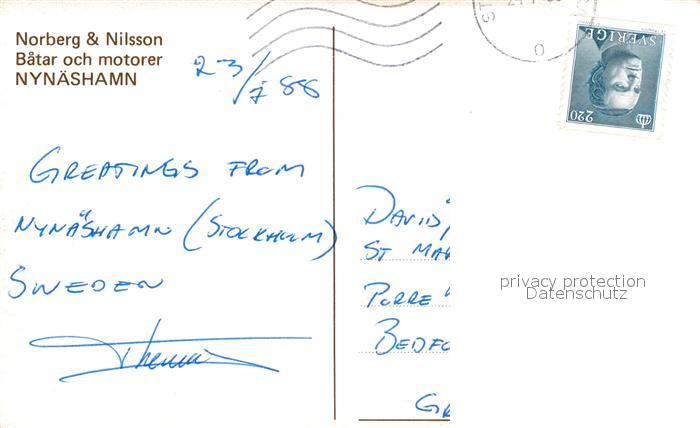 Norberg & Nilsson
Båtar och motorer
NYNÄSHAMN
23/7 88
GREATINGS FROM
NYNÄSHAMN (STOCKHOLM)
SWEDEN
DAVID
ST MA
PURRE
BEDFO
GR
SVERIGE
220
ST
O
privacy protection
Datenschutz